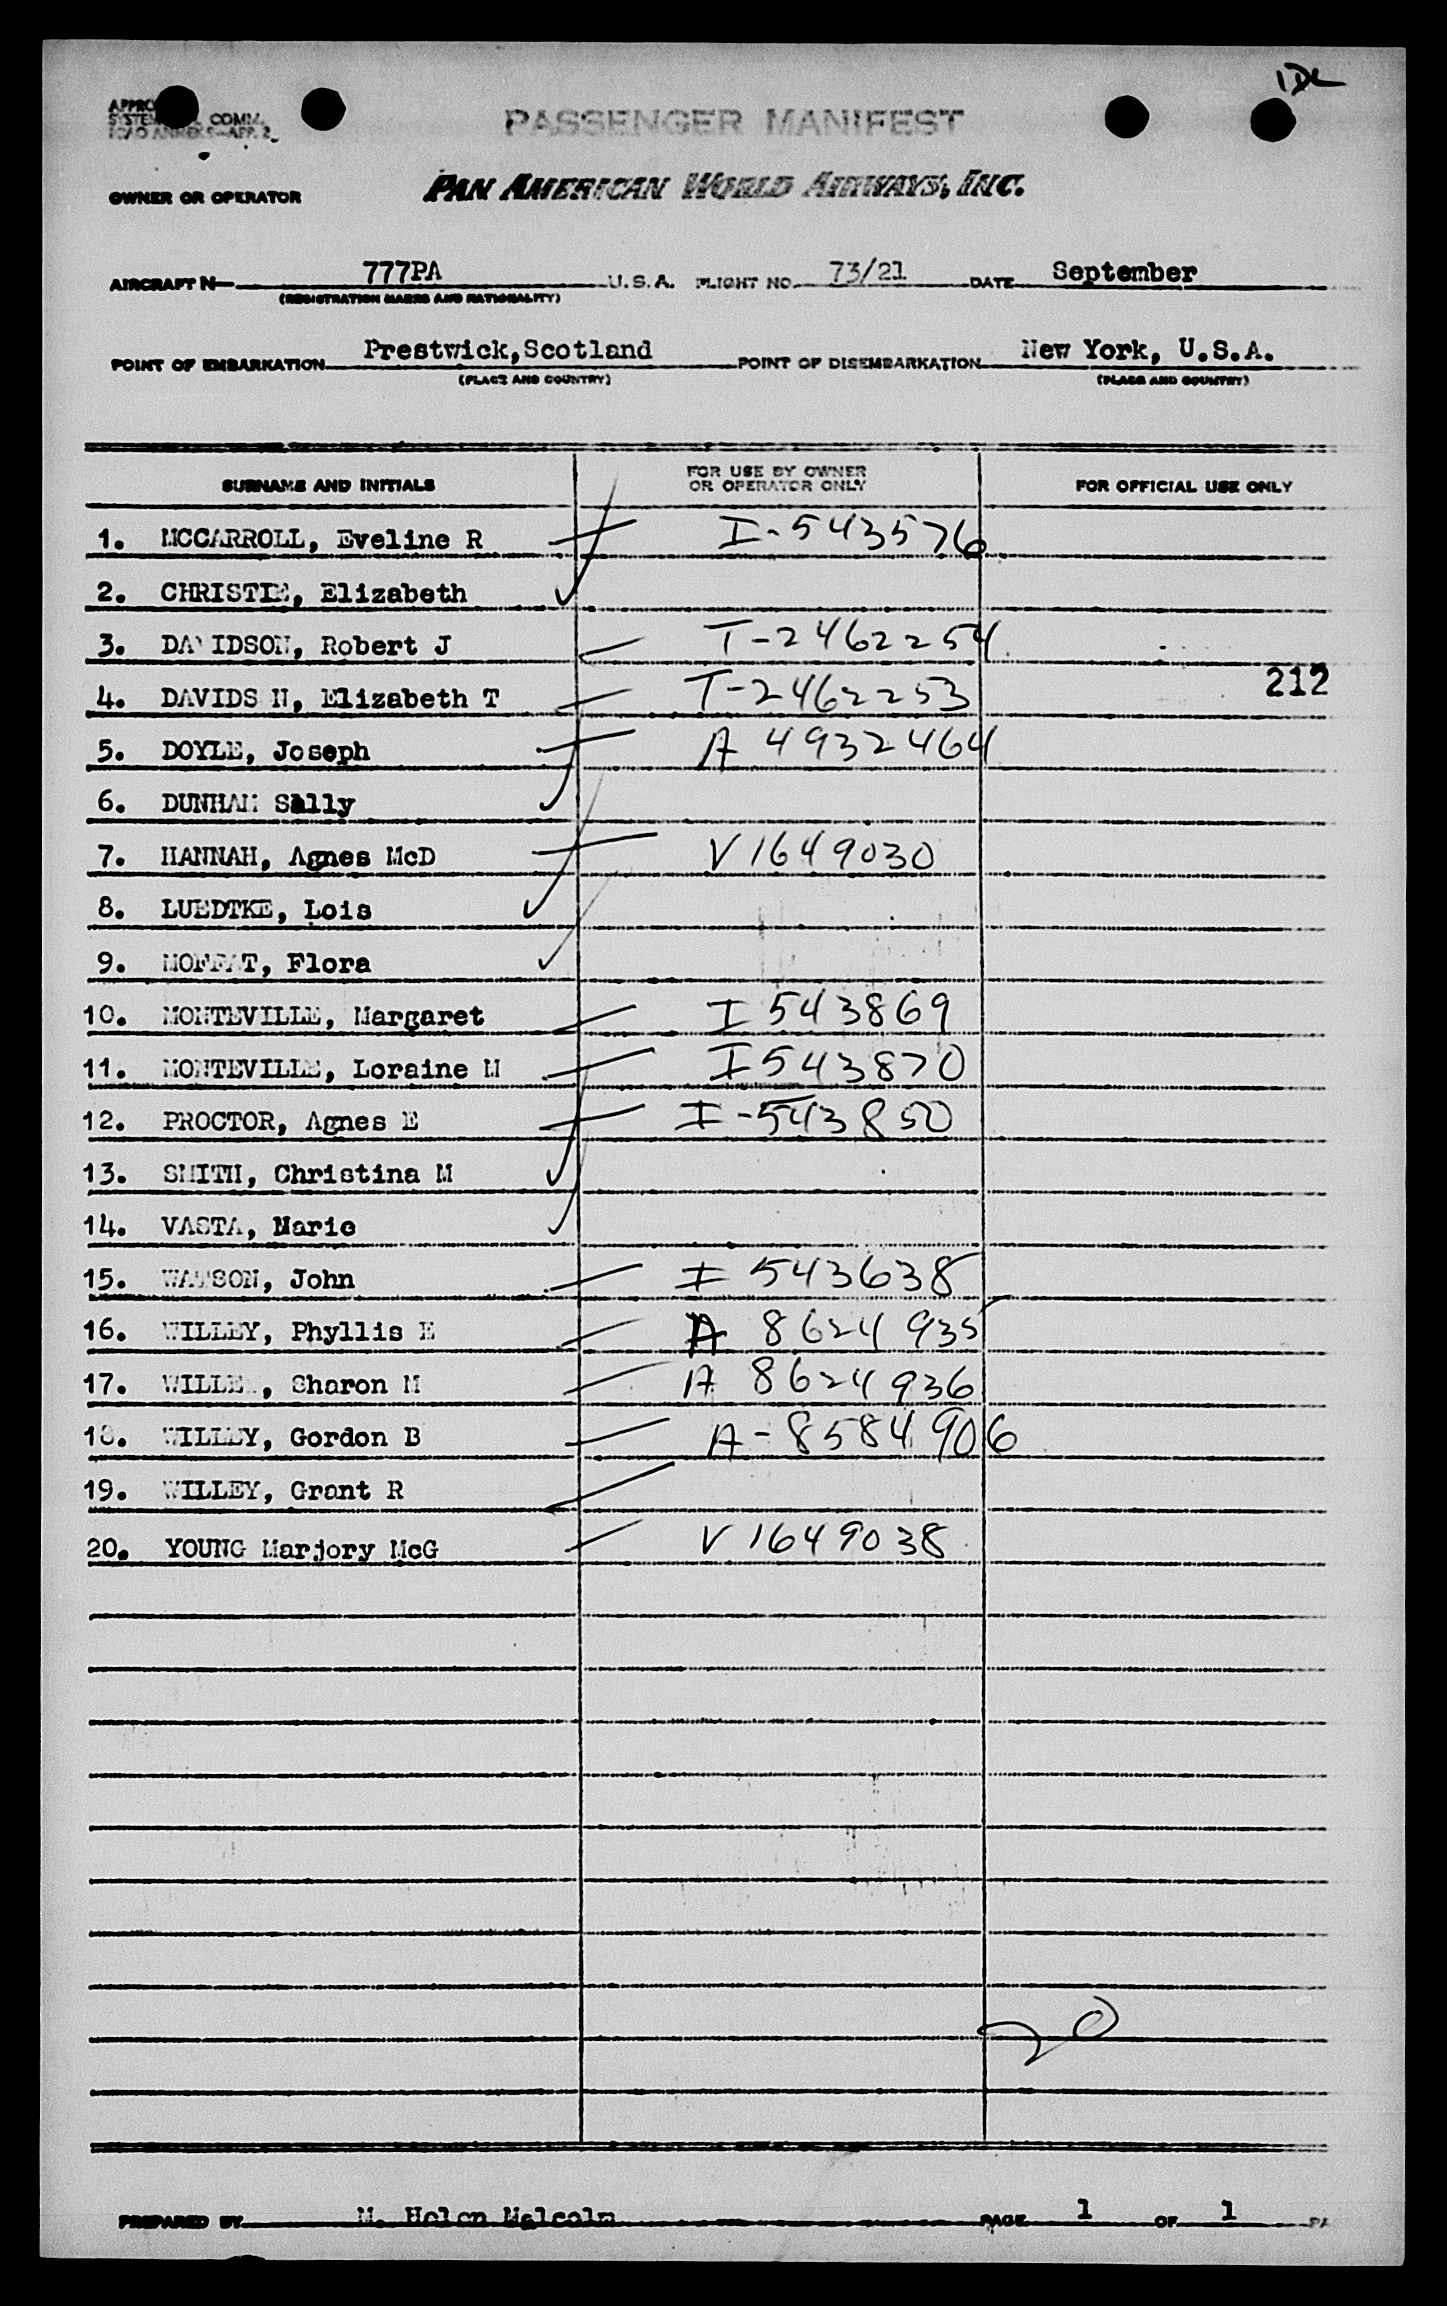 IDL
APPRO
SYSTEM COMM.
ICAO ANNEX 9—APP. 2
PASSENGER MANIFEST
OWNER OR OPERATOR PAN AMERICAN WORLD AIRWAYS, INC.
AIRCRAFT N— 777PA U.S.A. FLIGHT NO. 73/21 DATE September
(REGISTRATION MARKS AND NATIONALITY)
POINT OF EMBARKATION Prestwick,Scotland POINT OF DISEMBARKATION New York, U.S.A.
(PLACE AND COUNTRY) (PLACE AND COUNTRY)
SURNAME AND INITIALS FOR USE BY OWNER OR OPERATOR ONLY FOR OFFICIAL USE ONLY
1. MCCARROLL, Eveline R I-543576
2. CHRISTIE, Elizabeth
3. DAVIDSON, Robert J T-2462254
212
4. DAVIDS N, Elizabeth T T-2462253
5. DOYLE, Joseph A 4932464
6. DUNHAM Sally
7. HANNAH, Agnes McD V1649030
8. LUEDTKE, Lois
9. MOFFAT, Flora
10. MONTEVILLE, Margaret I 543869
11. MONTEVILLE, Loraine M I543870
12. PROCTOR, Agnes E I-543850
13. SMITH, Christina M
14. VASTA, Marie
15. WATSON, John I 543638
16. WILLEY, Phyllis E A 8624935
17. WILLEY, Sharon M A 8624936
18. WILLEY, Gordon B A-8584906
19. WILLEY, Grant R
20. YOUNG Marjory McG V1649038
20
PREPARED BY M. Helen Malcolm PAGE 1 OF 1 PA